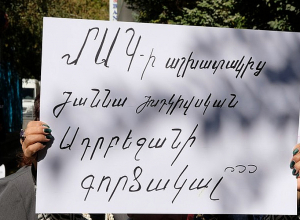 ՄԱԿ-ի աշխատակից
Ժաննա Յուդկիվսկան
Ադրբեջանի
գործակալ՞՞՞